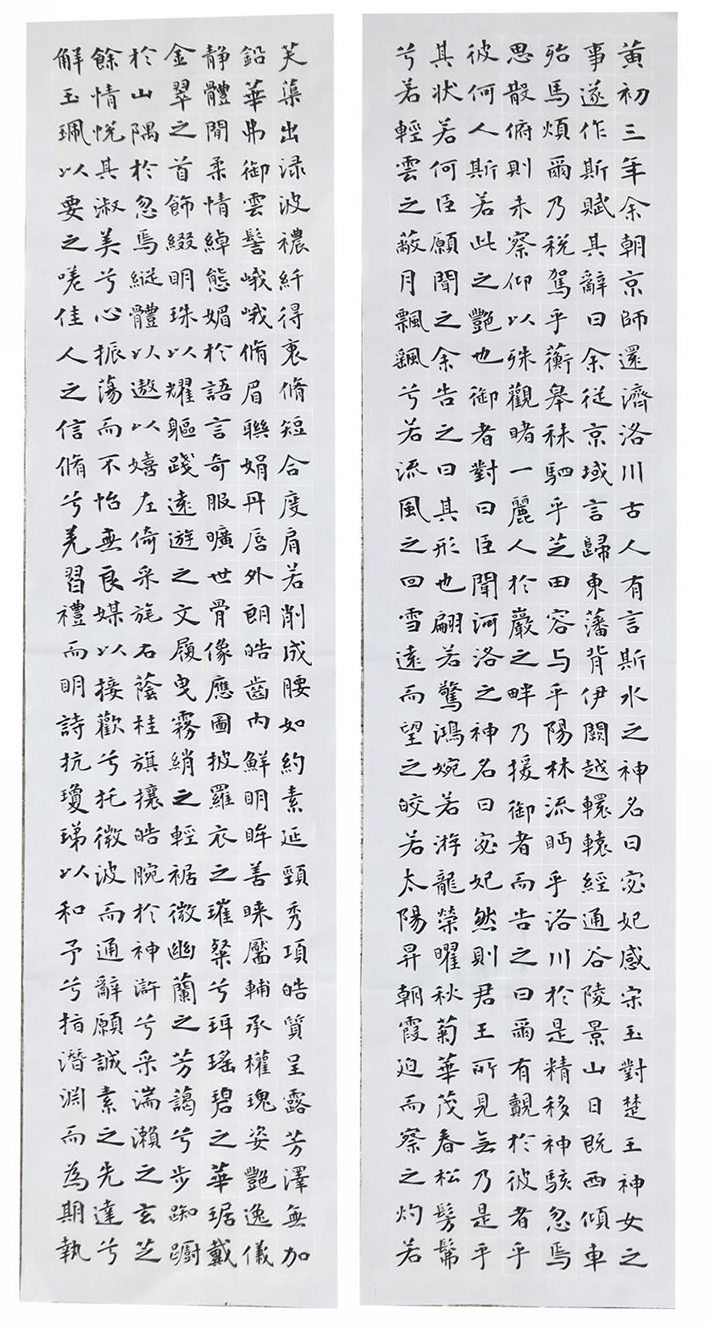 黃初三年余朝京師還濟洛川古人有言斯水之神名曰宓妃感宗玉對楚王神女之
事遂作斯賦其辭曰余從京域言歸東藩背伊闕越轘轅經通谷陵景山日既西傾車
殆馬煩爾乃稅駕乎蘅皋秣駟乎芝田容与乎陽林流眄乎洛川於是精移神駭忽焉
思散俯則未察仰以殊觀睹一麗人於巖之畔乃援御者而告之曰爾有覿於彼者乎
彼何人斯若此之艷也御者對曰臣聞河洛之神名曰宓妃然則君王所見無乃是乎
其狀若何臣願聞之余告之曰其形也翩若驚鴻婉若游龍榮曜秋菊華茂春松髣髴
兮若輕雲之蔽月飄飖兮若流風之回雪遠而望之皎若太陽昇朝霞迫而察之灼若
芙蕖出淥波穠纖得衷脩短合度肩若削成腰如約素延頸秀項皓質呈露芳澤無加
鉛華弗御雲髻峨峨脩眉聯娟丹唇外朗皓齒內鮮明眸善睞靨輔承權瑰姿艷逸儀
靜體閒柔情綽態媚於語言奇服曠世骨像應圖披羅衣之璀粲兮珥瑤碧之華琚戴
金翠之首飾綴明珠以耀軀踐遠遊之文履曳霧綃之輕裾微幽蘭之芳藹兮步踟躕
於山隅於忽焉縱體以遨以嬉左倚采旄右蔭桂旗攘皓腕於神滸兮采湍瀨之玄芝
餘情悅其淑美兮心振蕩而不怡無良媒以接歡兮托微波而通辭願誠素之先達兮
解玉珮以要之嗟佳人之信脩兮羌習禮而明詩抗瓊珶以和予兮指潛淵而為期執